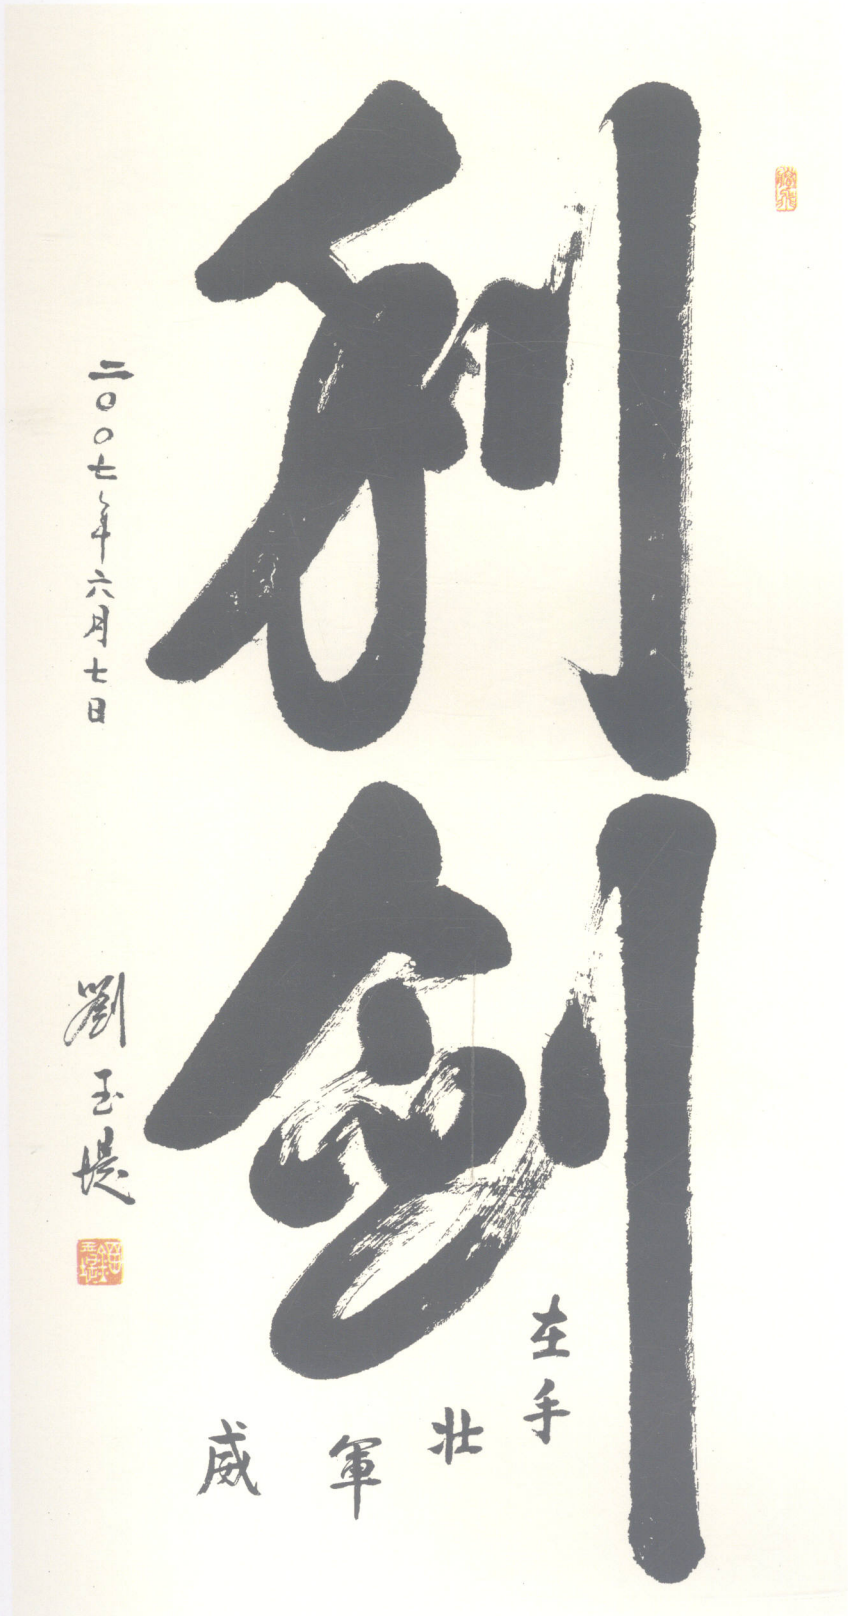 利剑
在手
壮
軍
威
二〇〇七年六月七日
劉玉堤